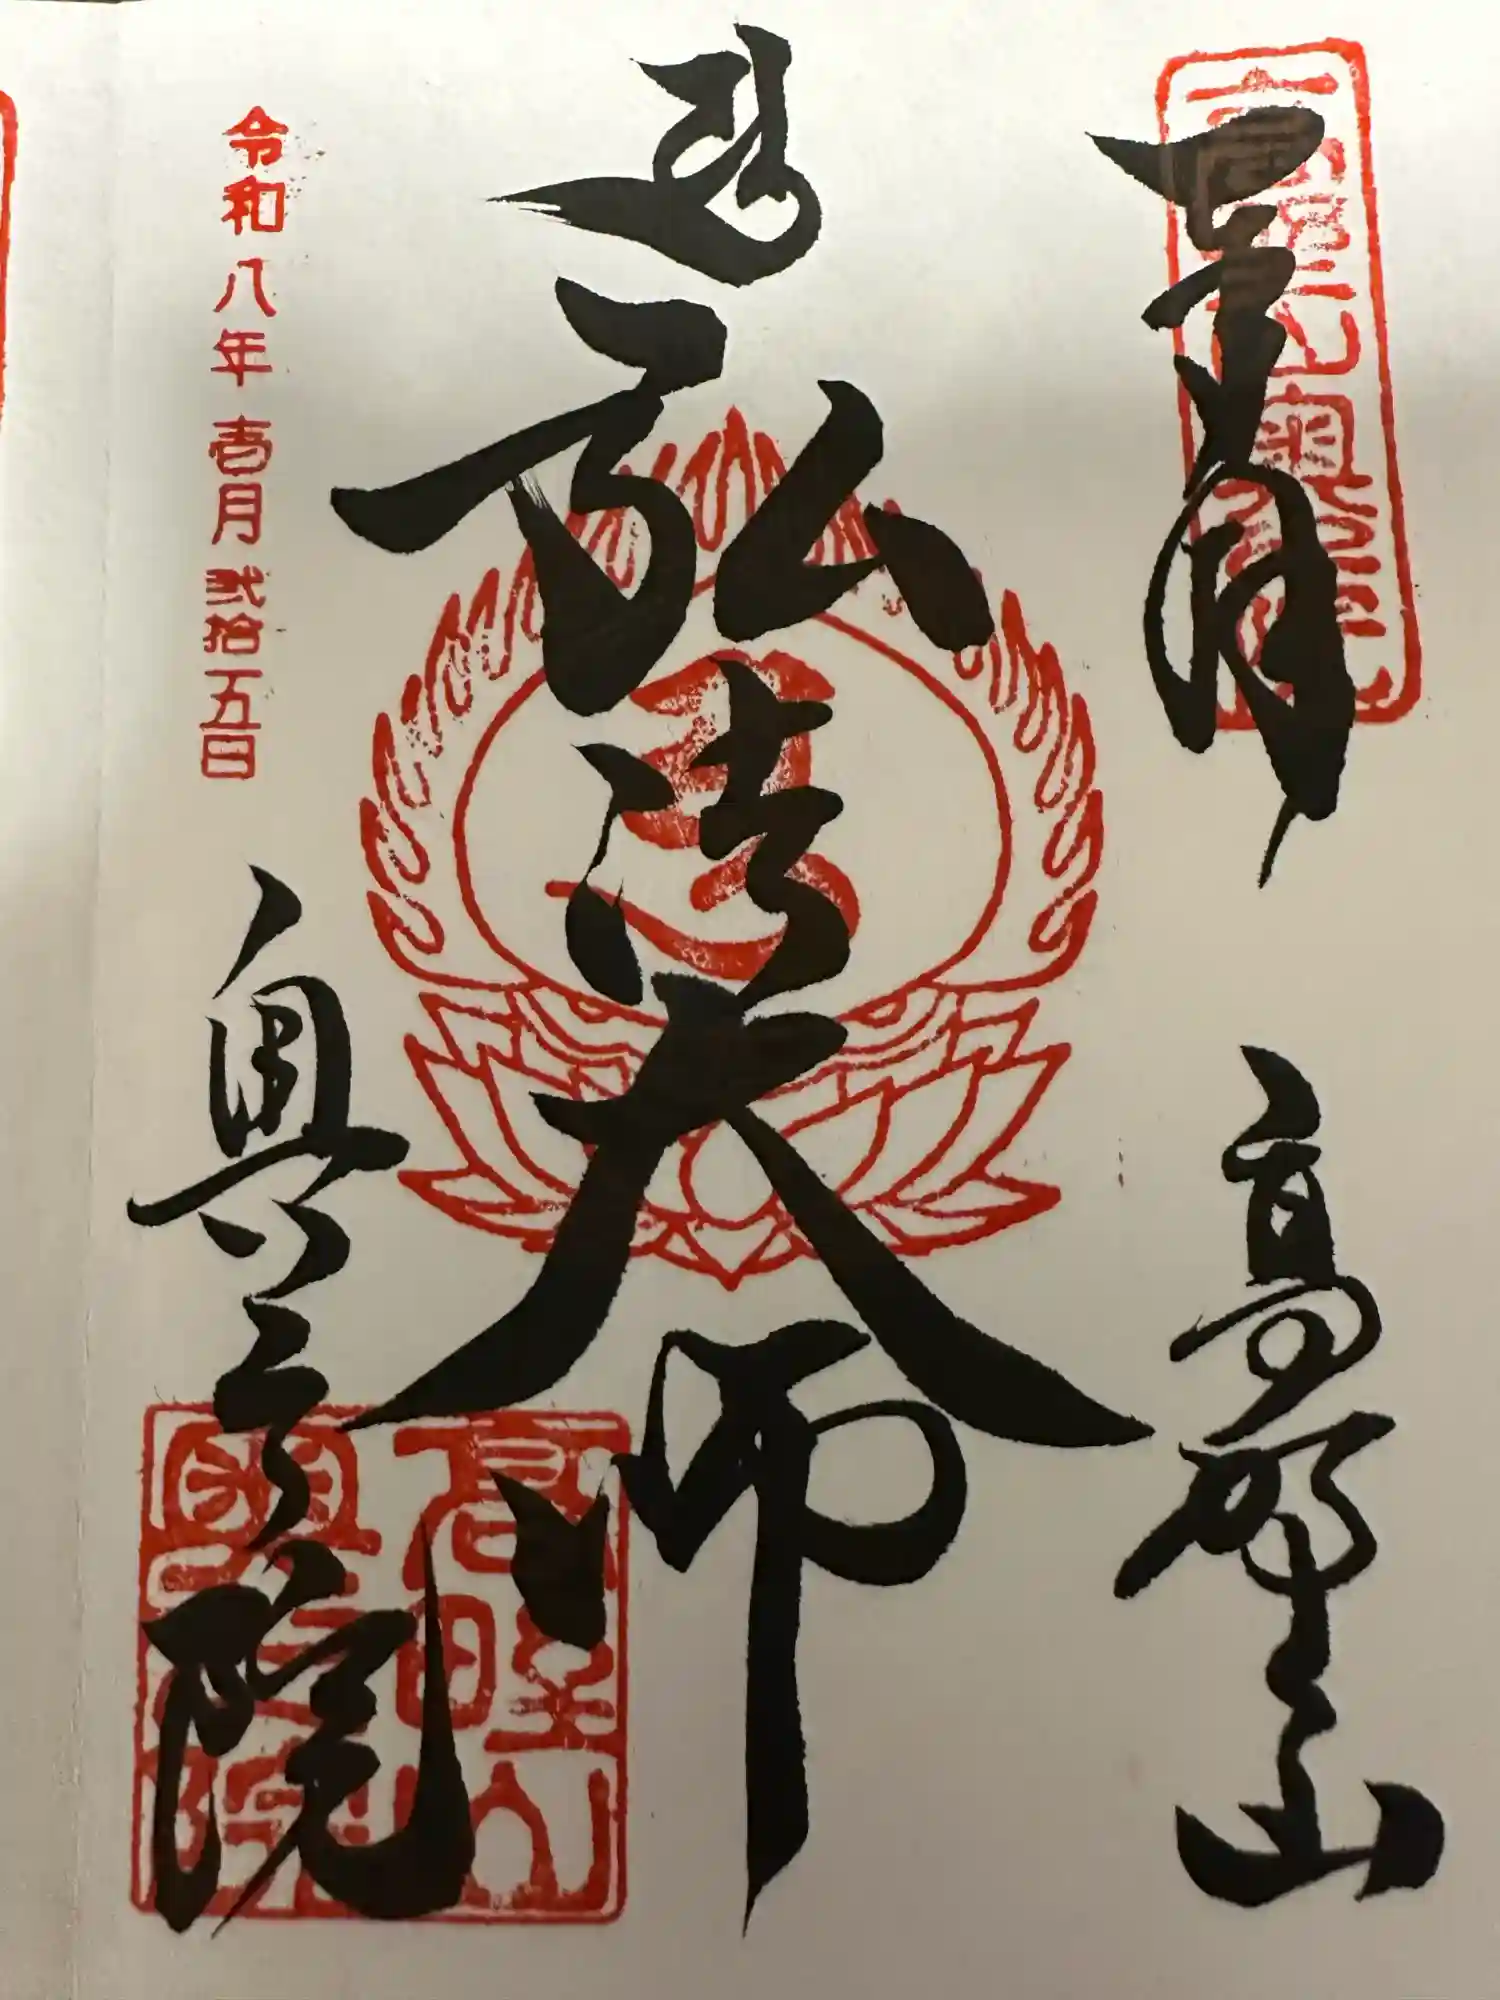 奉拝
高野山
弘法大師
令和八年壱月弐拾五日
奥之院
高野山
奥之院